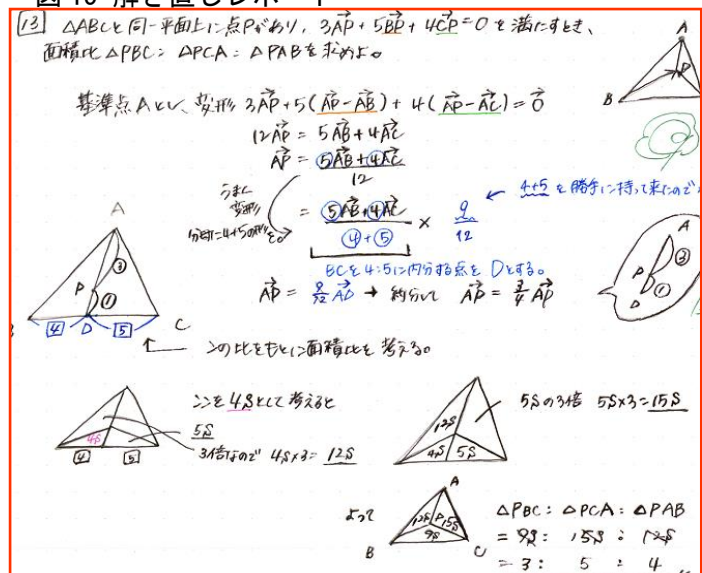 図10 解き直しレポート
[13] △ABCと同一平面上に点Pがあり, 3AP→+5BP→+4CP→=0 を満たすとき、
面積比 △PBC: △PCA: △PAB を求めよ。
A
B
P
基準点Aとし、変形 3AP→+5(AP→-AB→)+4(AP→-AC→)=0→
12AP→ = 5AB→+4AC→
AP→ = ⑤AB→+④AC→ / 12
うまく
変形
分母に4+5の形を。
= ⑤AB→+④AC→ / ④+⑤ × 9/12
← 4+5を勝手に持って来たので
BCを4:5に内分する点をDとする。
AP→ = 9/12 AD→ → 約分して AP→ = 3/4 AP→
A
③
P
①
④ D ⑤ C
A
③
P
①
D
この比をもとに面積比を考える。
ここを4Sとして考えると
5S
3倍なので 4S×3= 12S
4S
④ ⑤
12S
4S 5S
5Sの3倍 5S×3=15S
よって
A
12S P 15S
9S
B C
△PBC: △PCA: △PAB
= 9S: 15S : 12S
= 3: 5 : 4